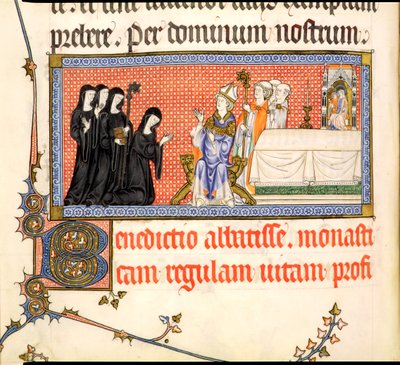 exemplum
prebere. Per dominum nostrum.
Benedictio abbatisse. monasti
cam regulam uitam profi